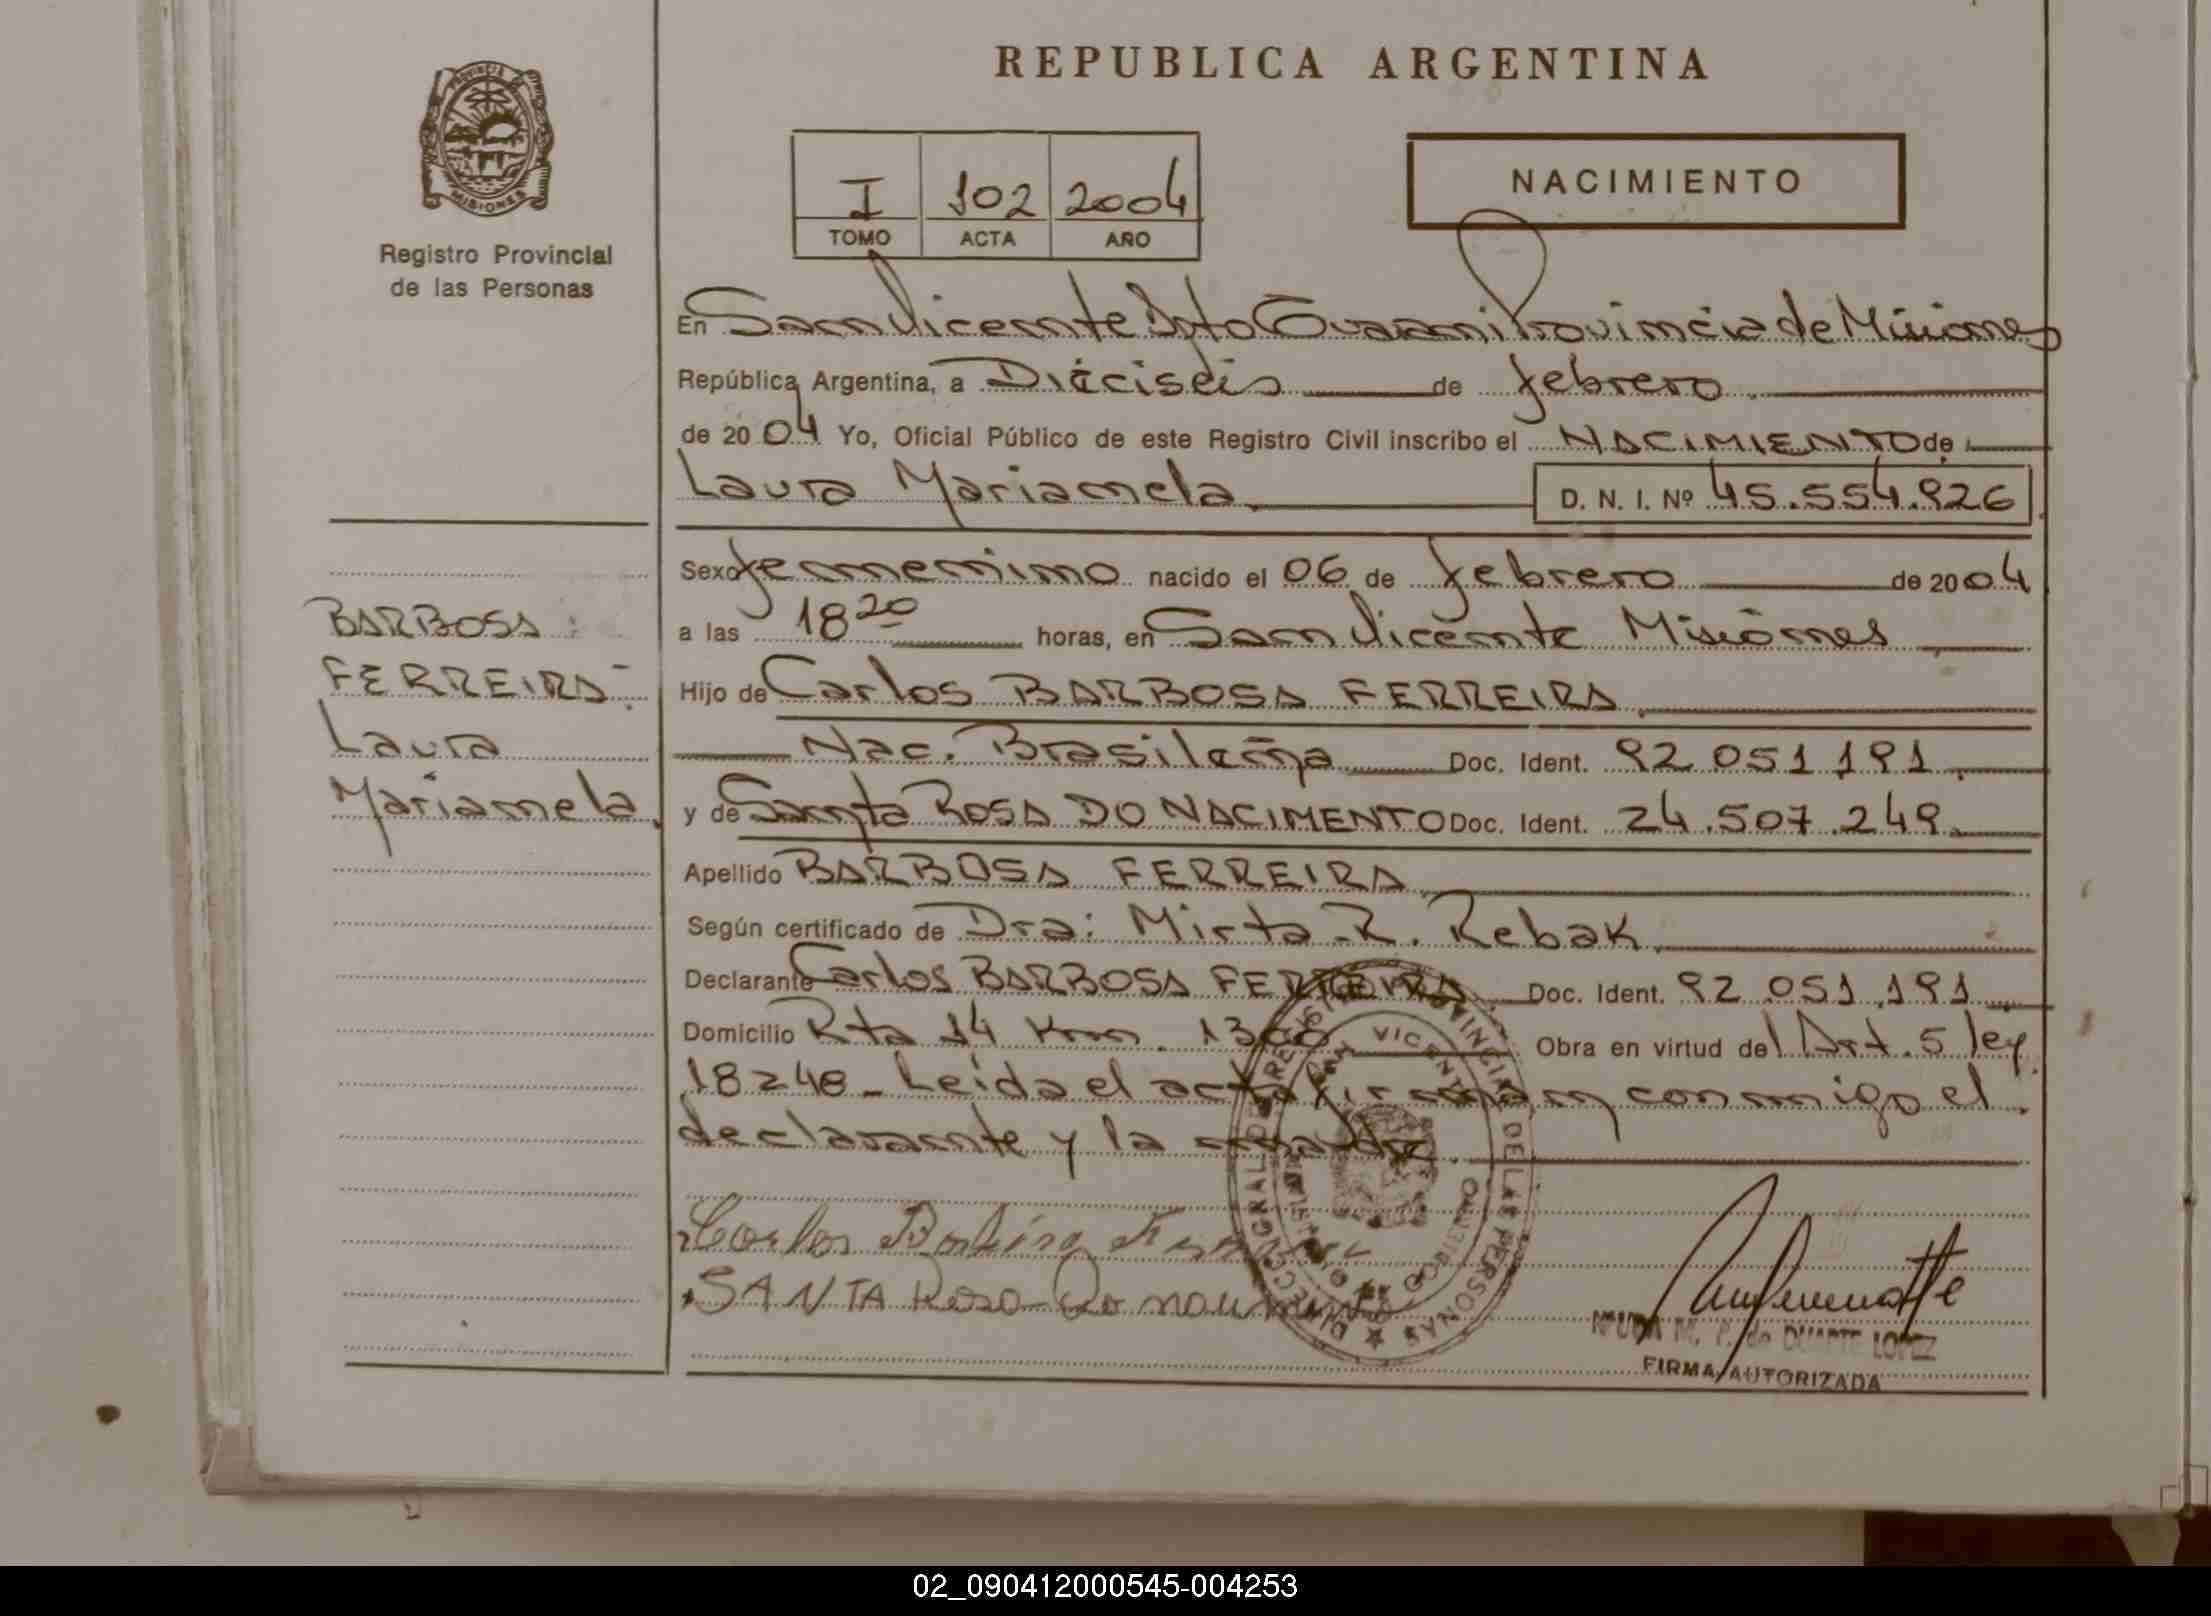 REPUBLICA ARGENTINA
PROVINCIA DE
MISIONES
Registro Provincial
de las Personas
I 102 2004
TOMO ACTA AÑO
NACIMIENTO
En San Vicente Dpto Guarani Provincia de Misiones
República Argentina, a Dieciséis de febrero
de 2004 Yo, Oficial Público de este Registro Civil inscribo el NACIMIENTO de
Laura Marianela D. N. I. Nº 45.554.926
Sexo femenino nacido el 06 de febrero de 2004
a las 18 20 horas, en San Vicente Misiones
Hijo de Carlos BARBOSA FERREIRA
Nac. Brasileña Doc. Ident. 92 051 191
y de Santa ROSA DO NACIMENTO Doc. Ident. 24.507.249
Apellido BARBOSA FERREIRA
Según certificado de Dra: Mirta R. Rebak
Declarante Carlos BARBOSA FERREIRA Doc. Ident. 92 051 191
Domicilio Rta 14 Km. 1300 Obra en virtud del Art. 5 ley
18248 - Leída el acta firman conmigo el
declarante y la madre
BARBOSA
FERREIRA
Laura
Marianela
Carlos
SANTA Rosa Do
DIRECCION GRAL. DE REGISTRO PROVINCIAL DE LAS PERSONAS
SAN VICENTE
M. P. de DUARTE LOPEZ
FIRMA AUTORIZADA
02_090412000545-004253